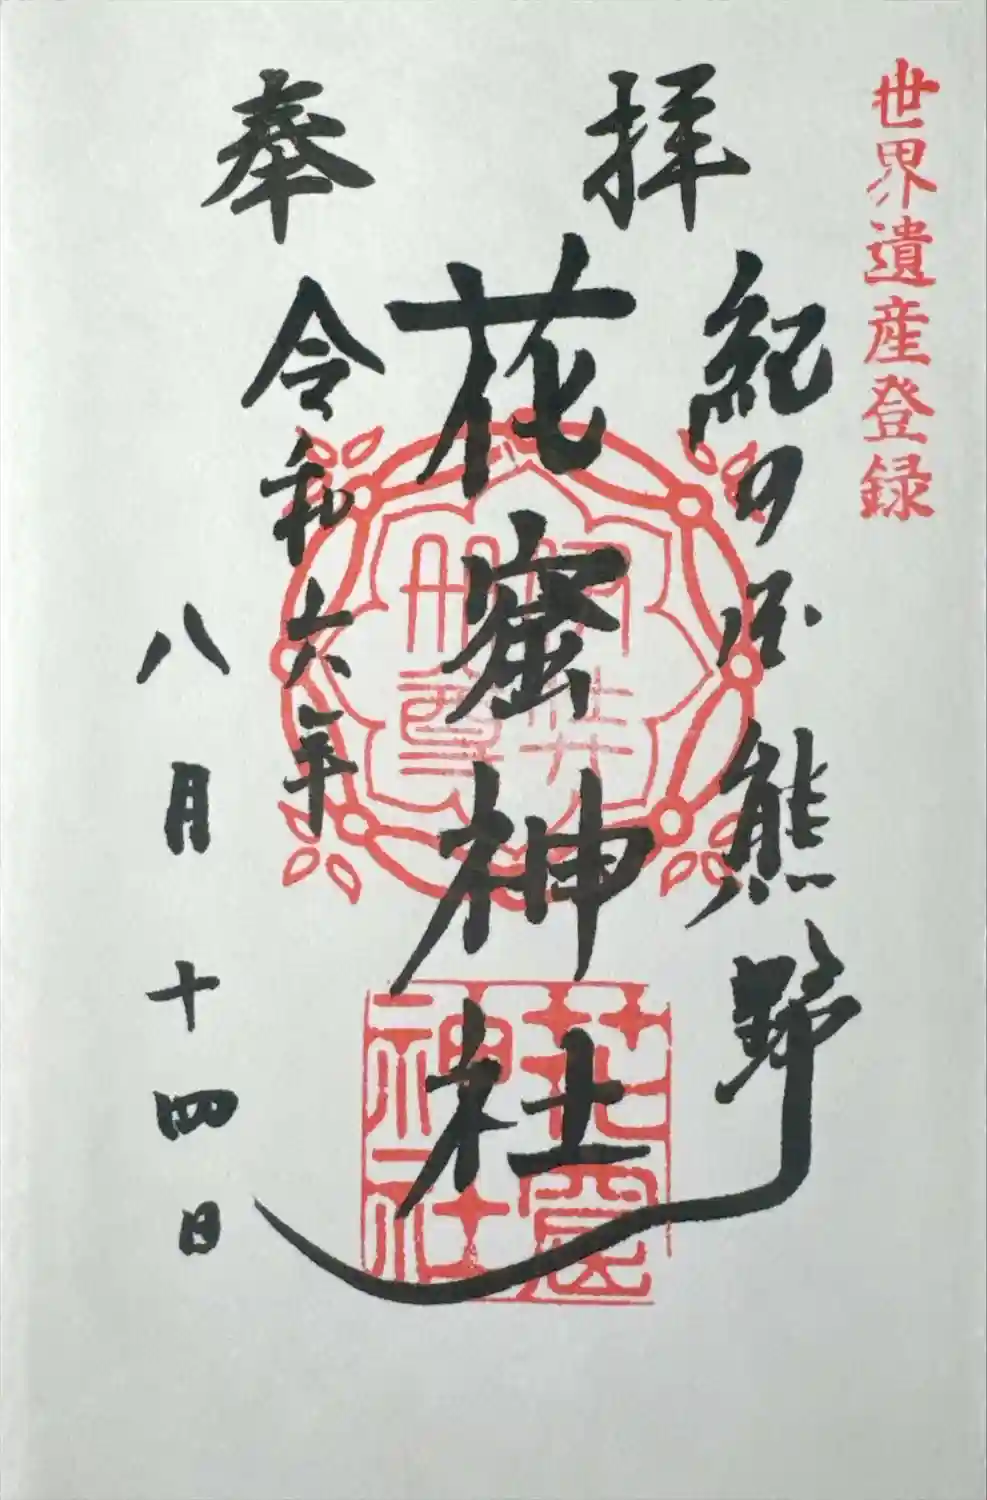 世界遺産登録
奉拝
紀の国熊野
花窟神社
令和六年
八月十四日
伊弉冊尊
花窟神社